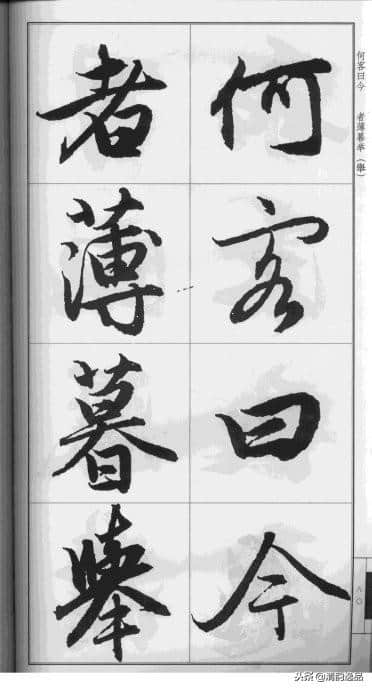 何客曰今
者薄暮举
何客曰今 者薄暮举(舉)
八〇
头条@清韵逸品